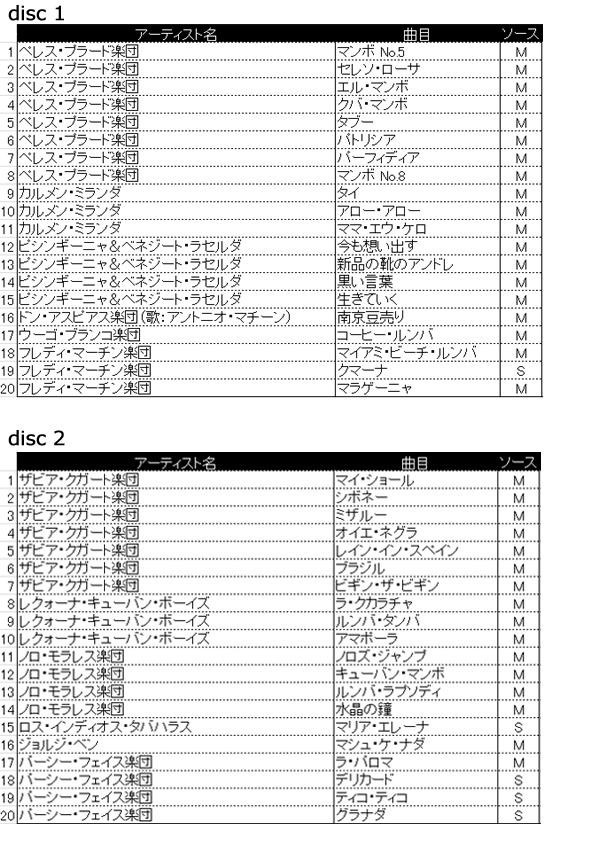 disc 1
アーティスト名 曲目 ソース
1 ペレス・プラード楽団 マンボ No.5 M
2 ペレス・プラード楽団 セレソ・ローサ M
3 ペレス・プラード楽団 エル・マンボ M
4 ペレス・プラード楽団 クバ・マンボ M
5 ペレス・プラード楽団 タブー M
6 ペレス・プラード楽団 パトリシア M
7 ペレス・プラード楽団 パーフィディア M
8 ペレス・プラード楽団 マンボ No.8 M
9 カルメン・ミランダ タイ M
10 カルメン・ミランダ アロー・アロー M
11 カルメン・ミランダ ママ・エウ・ケロ M
12 ピシンギーニャ&ベネジート・ラセルダ 今も想い出す M
13 ピシンギーニャ&ベネジート・ラセルダ 新品の靴のアンドレ M
14 ピシンギーニャ&ベネジート・ラセルダ 黒い言葉 M
15 ピシンギーニャ&ベネジート・ラセルダ 生きていく M
16 ドン・アスピアス楽団(歌:アントニオ・マチーン) 南京豆売り M
17 ウーゴ・ブランコ楽団 コーヒー・ルンバ M
18 フレディ・マーチン楽団 マイアミ・ビーチ・ルンバ M
19 フレディ・マーチン楽団 クマーナ S
20 フレディ・マーチン楽団 マラゲーニャ M
disc 2
アーティスト名 曲目 ソース
1 ザビア・クガート楽団 マイ・ショール M
2 ザビア・クガート楽団 シボネー M
3 ザビア・クガート楽団 ミザルー M
4 ザビア・クガート楽団 オイエ・ネグラ M
5 ザビア・クガート楽団 レイン・イン・スペイン M
6 ザビア・クガート楽団 ブラジル M
7 ザビア・クガート楽団 ビギン・ザ・ビギン M
8 レクォーナ・キューバン・ボーイズ ラ・クカラチャ M
9 レクォーナ・キューバン・ボーイズ ルンバ・タンバ M
10 レクォーナ・キューバン・ボーイズ アマポーラ M
11 ノロ・モラレス楽団 ノロズ・ジャンプ M
12 ノロ・モラレス楽団 キューバン・マンボ M
13 ノロ・モラレス楽団 ルンバ・ラプソディ M
14 ノロ・モラレス楽団 水晶の鐘 M
15 ロス・インディオス・タバハラス マリア・エレーナ S
16 ジョルジ・ベン マシュ・ケ・ナダ M
17 パーシー・フェイス楽団 ラ・パロマ M
18 パーシー・フェイス楽団 デリカード S
19 パーシー・フェイス楽団 ティコ・ティコ S
20 パーシー・フェイス楽団 グラナダ S